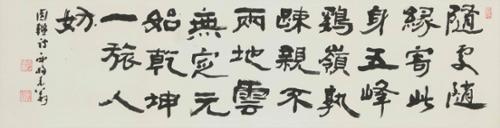 隨處隨
緣寄此
身五峰
鷄嶺孰
踈親不
兩地雲
無定元
如乾坤
一旅人
妨